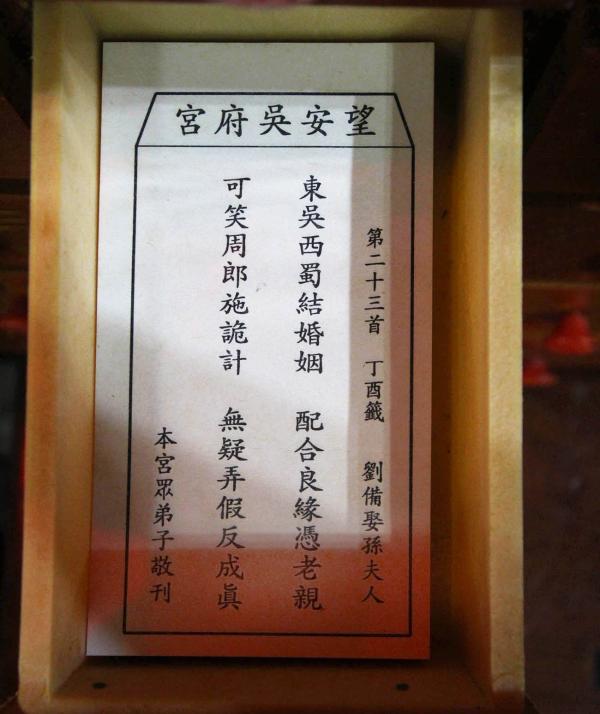 望安吳府宮
第二十三首 丁酉籤 劉備娶孫夫人
東吳西蜀結婚姻 配合良緣憑老親
可笑周郎施詭計 無疑弄假反成眞
本宮眾弟子敬刊